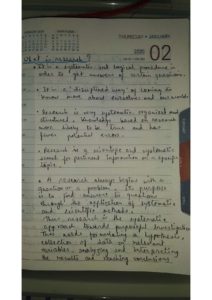 THURSDAY • JANUARY
02
What is research?
• It is a systematic but logical procedure in
order to get answers of certain questions.
• It is a disciplined way of coming to
know more about ourselves and our world
• Research is very systematic organised and
structured a knowledge based approach
more likely to be true and has
fewer potential errors.
• Research is a scientific and systematic
search for pertinent information on a specific
topic.
• A research always begins with a
question or a problem. Its purpose
is to find answers to questions
through the application of systematic
and scientific methods.
Thus, research is the systematic
approach towards purposeful investigation
This needs formulating a hypothesis,
collection of data on relevant
variables, analyzing and interpreting
the results and reaching conclusions.